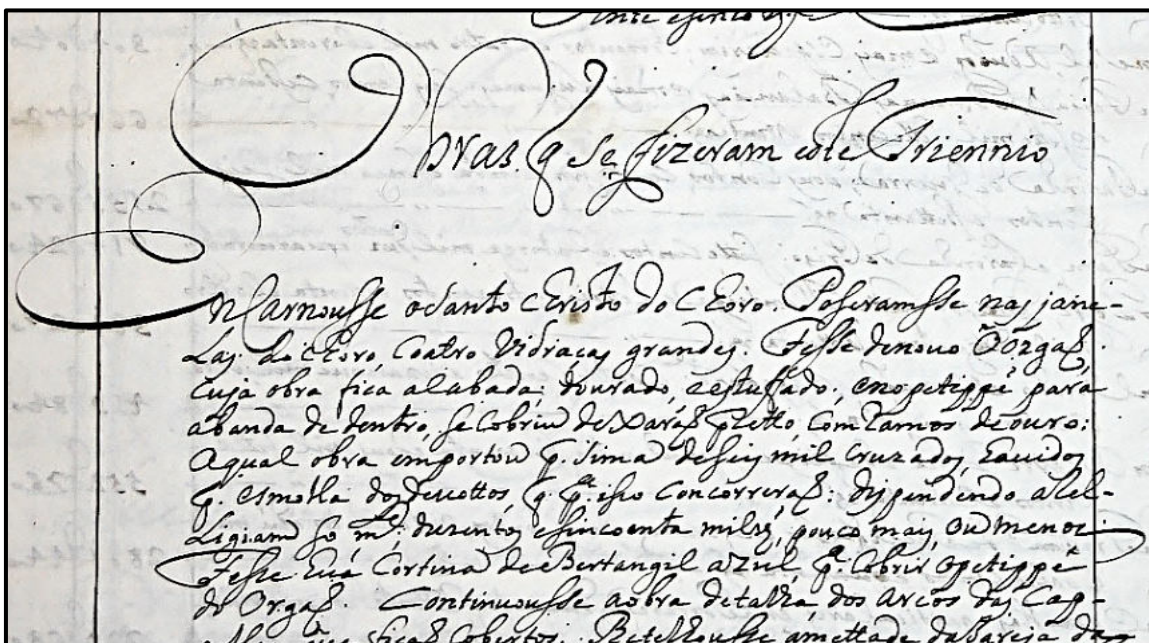 Obras q̃ se fizeram este Triennio
Encarnousse o Santo Christo do Choro. Poseramsse nas jane-
las do Choro coatro Vidraças grandes. Fesse denovo o orgaõ.
cuja obra fica acabada; dourado, e estuffado; e no petippé para
abanda de dentro, se cobriu de xaraõ pretto, com ramos de ouro:
aqual obra emportou p. sima de seis mil cruzados, havidos
p. esmolla dos devottos, q̃ p.ª isso concorreraõ: dispendendo a rel-
ligiam só m.te duzentos e sincoenta mil rs, pouco mais, ou menos.
Fesse huã Cortina de Bertangil azul, p.ª cobrir o petippé
do Orgaõ. Continuousse a obra de talha dos arcos das Cap-
ficaõ cobertos. Retelhousse ametade da Igreja dos